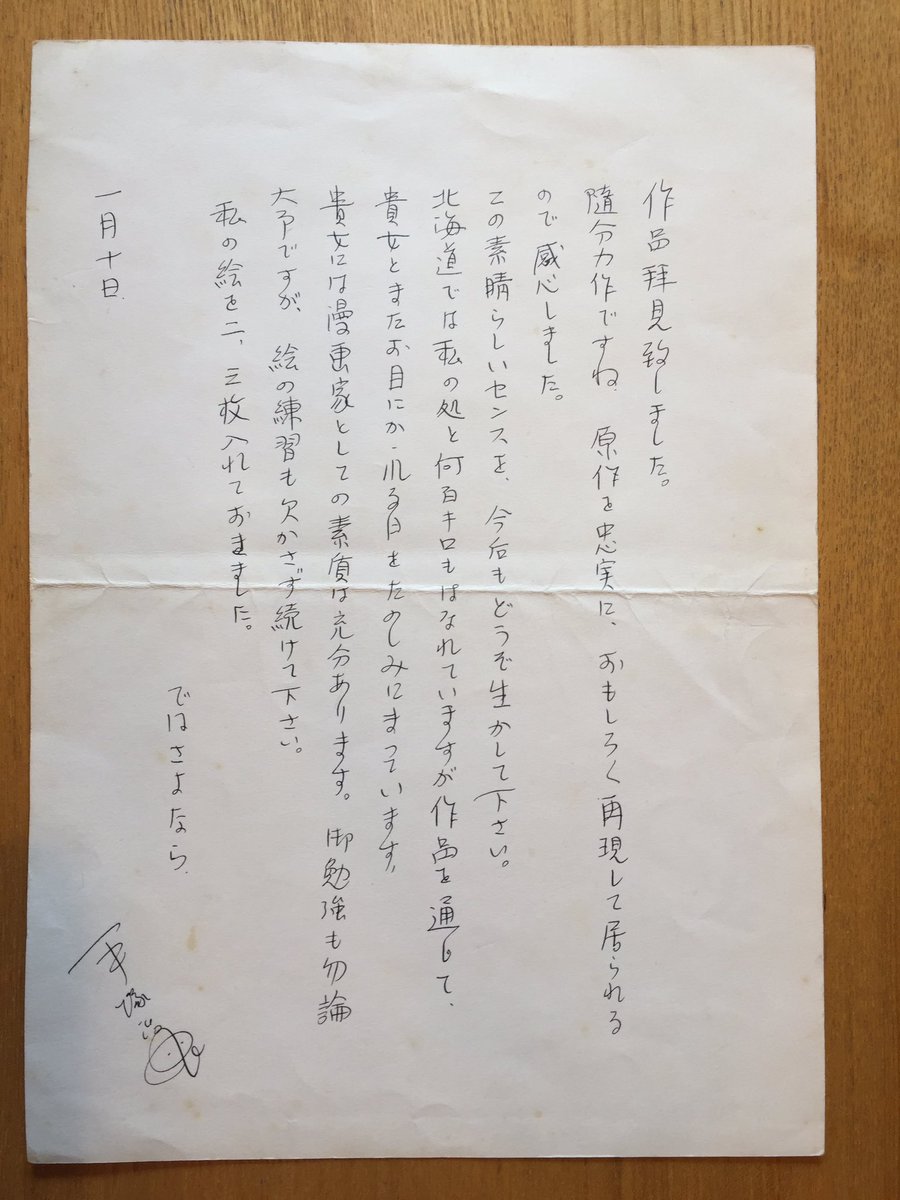 作品拝見致しました。
随分力作ですね 原作を忠実に、おもしろく再現して居られる
ので感心しました。
この素晴らしいセンスを、今后もどうぞ生かして下さい。
北海道では私の処と何百キロもはなれていますが作品を通じて、
貴女とまたお目にかゝれる日をたのしみにまっています、
貴女には漫画家としての素質は充分あります。御勉強も勿論
大予ですが、絵の練習も欠かさず続けて下さい。
私の絵を二、三枚入れておきました。
ではさよなら、
一月十日、
手塚治虫